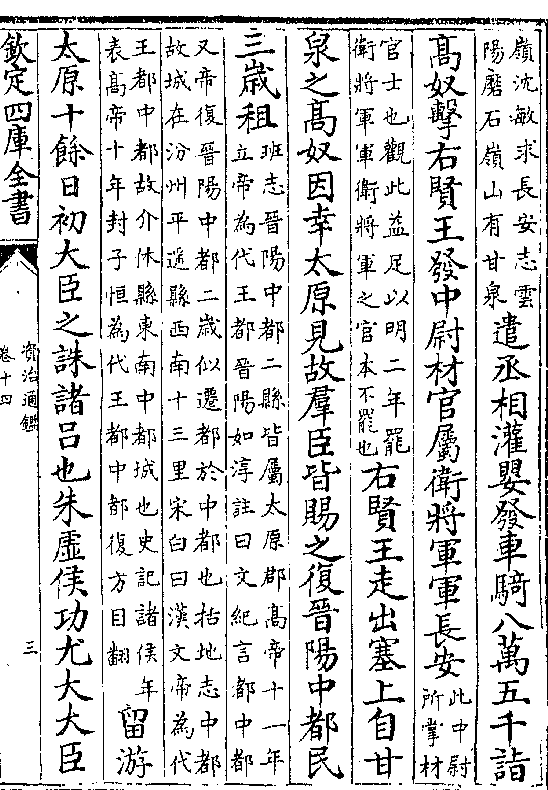 嶺沈敏求長安志雲
陽磨石嶺山有甘泉
遣丞相灌嬰發車騎八萬五千詣
髙奴擊右賢王發中尉材官屬衛將軍軍長安
此中尉
所掌材
官士也觀此益足以明二年罷
衛將軍軍衛將軍之官本不罷也
右賢王走出塞上自甘
泉之髙奴因幸太原見故羣臣皆賜之復晉陽中都民
三歲租
班志晉陽中都二縣皆屬太原郡髙帝十一年
立帝為代王都晉陽如淳註曰文紀言都中都
又帝復晉陽中都二歲似遷都於中都也括地志中都
故城在汾州平遥縣西南十三里宋白曰漢文帝為代
王都中都故介休縣東南中都城也史記諸侯年
表髙帝十年封子恒為代王都中都復方目翻
留游
太原十餘日初大臣之誅諸吕也朱虚侯功尤大大臣
欽定四庫全書
資治通鑑
卷十四
三